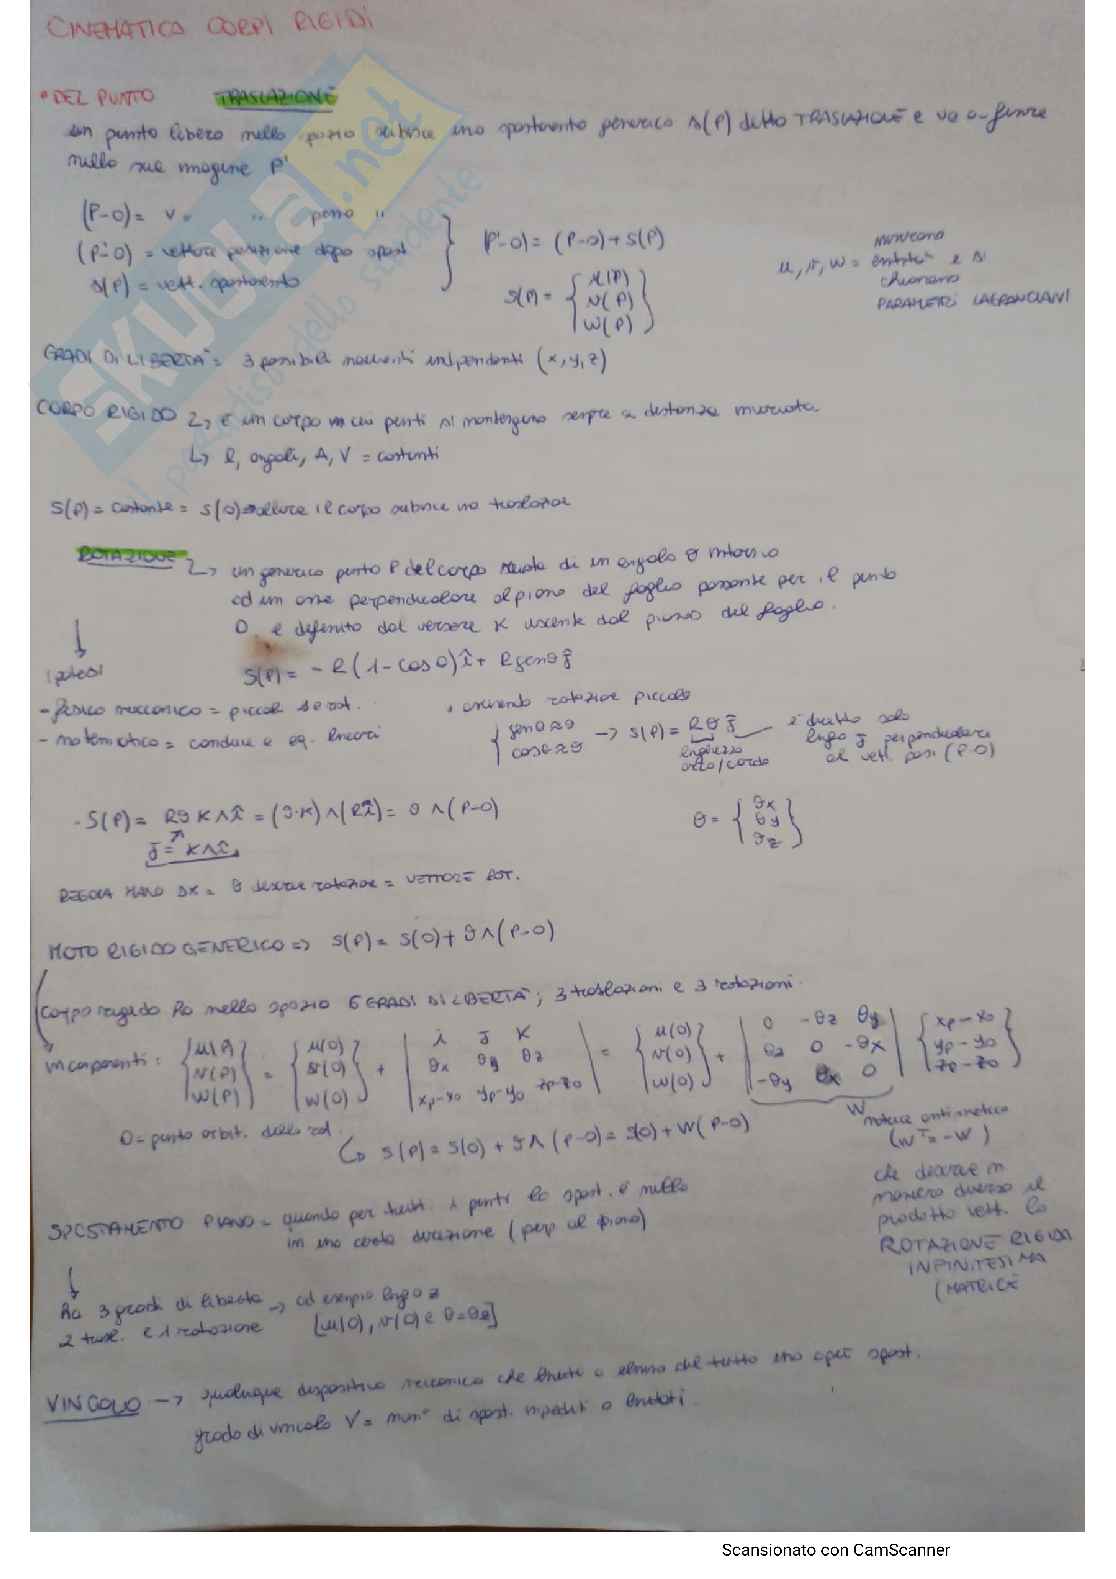 CINEMATICA CORPI RIGIDI
• DEL PUNTO TRASLAZIONE
un punto libero nello spazio subisce uno spostamento generico s(P) detto TRASLAZIONE e va a finire
nella sua imagine P'
(P-O) = v = " perso "
(P'-O) = vettore posizione dopo spost
s(P) = vett. spostamento
(P'-O) = (P-O) + s(P)
s(P) = { u(P)
v(P)
w(P) }
u, v, w = entità e si
chiamano
PARAMETRI LAGRANGIANI
GRADI DI LIBERTA' = 3 possibili movimenti indipendenti (x, y, z)
CORPO RIGIDO è un corpo in cui punti si mantengono sempre a distanza mutuata
↳ l, angoli, A, V = costanti
s(P) = costante = s(O) allora il corpo subisce una traslazione
ROTAZIONE un generico punto P del corpo ruota di un angolo θ intorno
ad un asse perpendicolare al piano del foglio passante per il punto
O e definito dal versore K uscente dal piano del foglio.
ipotesi
s(P) = - R(1-cosθ)î + R senθ ĵ
- fisico meccanico = piccoli
- matematico = conduce a eq. lineari
essendo rotazione piccola
{ senθ≈θ
cosθ≈θ → s(P) = Rθ j̄
lunghezza
arco/corda
è diretto solo
lungo j̄ perpendicolare
al vett. posi (P-O)
- s(P) = Rθ K∧î = (θ·K)∧(Rî) = θ∧(P-O)
j̄ = K∧î
θ = { θx
θy
θz }
REGOLA MANO DX = θ descrive rotazione = VETTORE ROT.
MOTO RIGIDO GENERICO => s(P) = s(O) + θ∧(P-O)
Corpo rigido ha nello spazio 6 GRADI DI LIBERTA'; 3 traslazioni e 3 rotazioni.
in componenti: { u(P) v(P) w(P) } = { u(O) v(O) w(O) } + | i j K θx θy θz xp-xo yp-yo zp-zo | = { u(O) v(O) w(O) } + | 0 -θz θy θz 0 -θx -θy θx 0 | { xp-xo yp-yo zp-zo }
O = punto arbit. della rot.
↳ s(P) = s(O) + θ∧(P-O) = s(O) + W(P-O)
W
matrice antisimetrica
(Wᵀ = -W)
che descrive in
maniera diversa il
prodotto vett. la
ROTAZIONE RIGIDA
INFINITESIMA
(MATRICE
SPOSTAMENTO PIANO = quando per tutti i punti lo spost. è nullo
in una certa direzione (perp al piano)
ha 3 gradi di libertà → ad esempio lungo z
2 trasl. e 1 rotazione [u(O), v(O) e θ=θz]
VINCOLO → qualunque dispositivo meccanico che limita o elimina del tutto uno spost.
grado di vincolo V = num° di spost. impediti o limitati.
SKUOLA.net
il paradiso dello studente
Scansionato con CamScanner